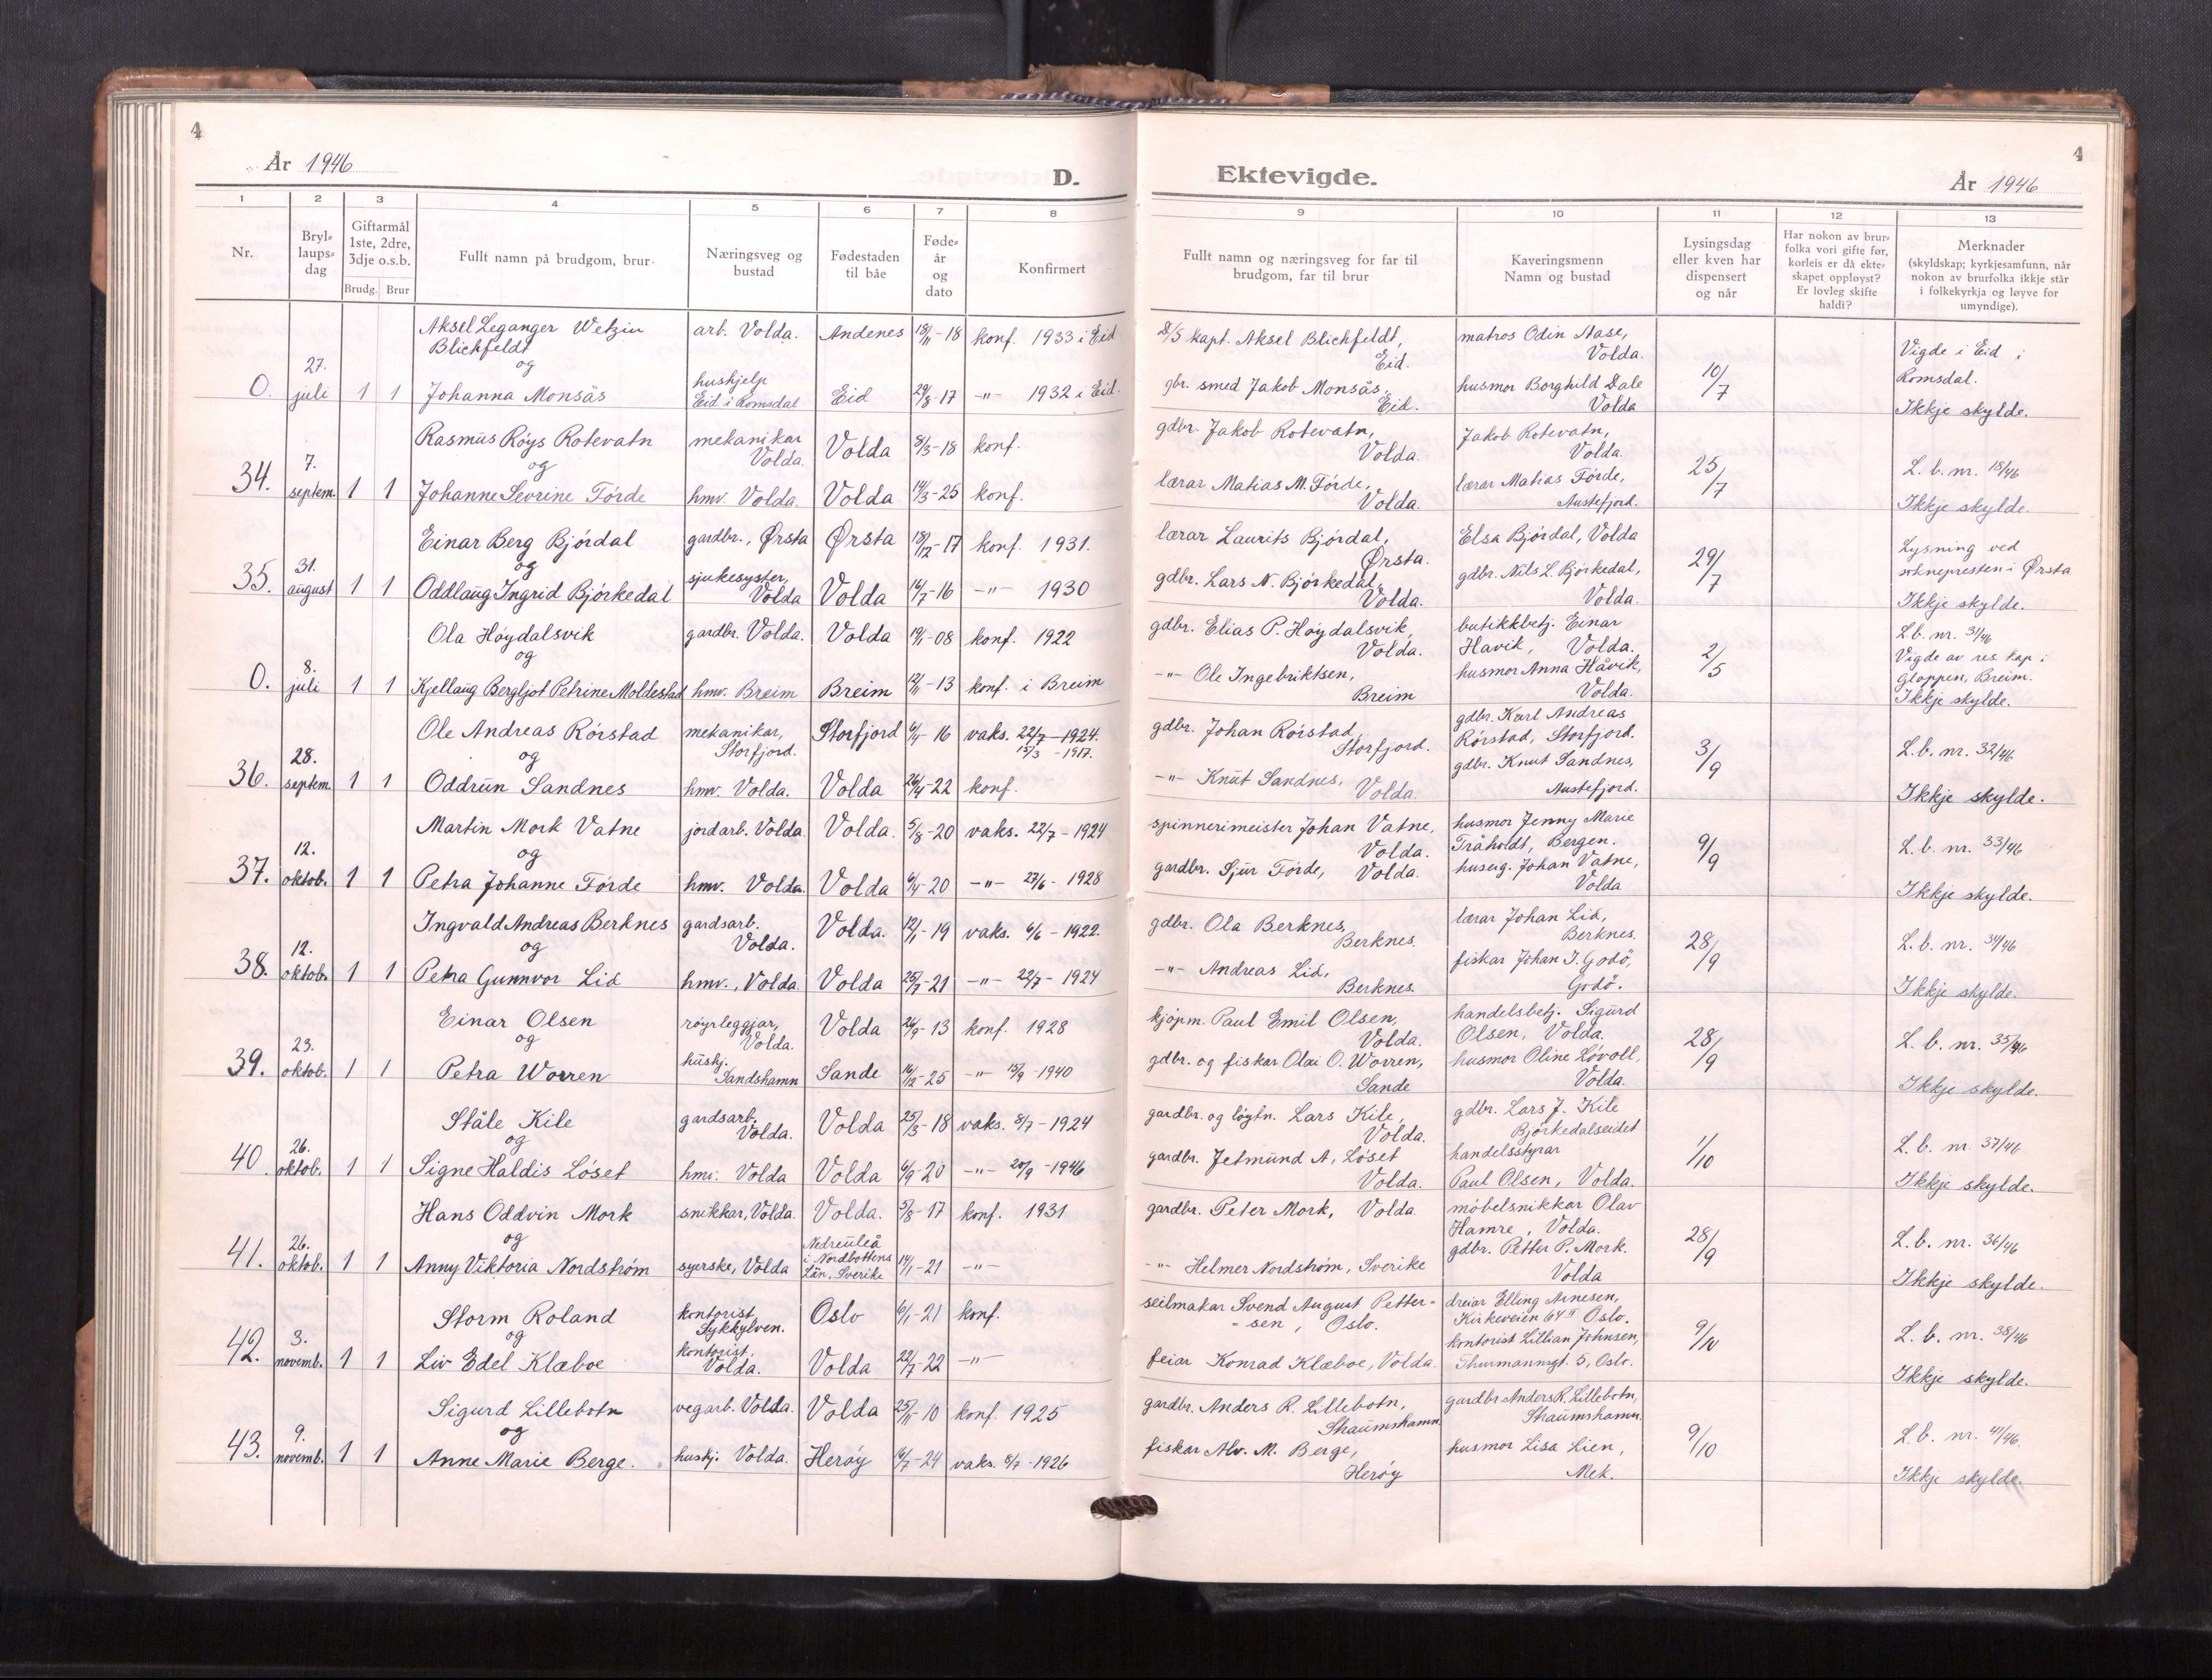 4
År 1946
D.
1 2 3 4 5 6 7 8
Nr.
Bryl-
laups-
dag
Giftarmål
1ste, 2dre,
3dje o.s.b.
Brudg. Brur
Fullt namn på brudgom, brur
Næringsveg og
bustad
Fødestaden
til båe
Føde-
år
og
dato
Konfirmert
Aksel Leganger Wetzin arb. Volda. Andenes 18/11-18 konf. 1933 i Eid
Blichfeldt
og
0. 27. juli 1 1 Johanna Monsås hushjelp Eid 29/8-17 -"- 1932 i Eid.
Eid i Romsdal
Rasmus Röys Rotevatn mekanikar Volda 8/3-18 konf.
Volda.
og
34. 7. septem. 1 1 Johanne Sevrine Förde hmv. Volda. Volda 14/3-25 konf.
Einar Berg Bjórdal gardbr., Ørsta Ørsta 18/12-17 konf. 1931.
og
35. 31. august 1 1 Oddlaug Ingrid Bjórkedal sjukesyster, Volda 14/7-16 -"- 1930
Volda
Ola Höydalsvik gardbr. Volda. Volda 19/1-08 konf. 1922
og
0. 8. juli 1 1 Kjellaug Bergljot Petrine Moldestad hmv. Breim Breim 12/11-13 konf. i Breim
Ole Andreas Rörstad mekanikar, Storfjord 6/4-16 vaks. 22/7-1924.
Storfjord. 15/3 - 1917.
og
36. 28. septem. 1 1 Oddrun Sandnes hmv. Volda. Volda 26/4-22 konf.
Martin Mork Vatne jordarb. Volda. Volda. 5/8-20 vaks. 22/7-1924
og
37. 12. oktob. 1 1 Petra Johanne Förde hmv. Volda. Volda 6/4-20 -"- 27/6-1928
Ingvald Andreas Berknes gardsarb. Volda. 12/1-19 vaks. 6/6-1922.
Volda.
og
38. 12. oktob. 1 1 Petra Gunnvor Lid hmv., Volda. Volda 25/7-21 -"- 22/7-1924
Einar Olsen röyrleggjar, Volda 26/9-13 konf. 1928
Volda.
og
39. 23. oktob. 1 1 Petra Worren hushj. Sande 16/12-25 -"- 15/9-1940
Sandshamn
Ståle Kile gardsarb. Volda 25/3-18 vaks. 8/7-1924
Volda.
og
40. 26. oktob. 1 1 Signe Haldis Löset hmv. Volda Volda 6/9-20 -"- 20/9-1946
Hans Oddvin Mork snikkar, Volda. Volda. 5/8-17 konf. 1931
og
41. 26. oktob. 1 1 Anny Viktoria Nordström syerske, Volda Nedreuleå 14/1-21 -"-
i Nordbottens
Län, Sverike
Storm Roland kontorist Oslo 6/1-21 konf.
Sykkylven.
og
42. 3. novemb. 1 1 Liv Edel Klæboe kontorist. Volda 22/7-22 -"-
Volda.
Sigurd Lillebotn vegarb. Volda. Volda 25/11-10 konf. 1925
og
43. 9. novemb. 1 1 Anne Marie Berge. hushj. Volda. Herøy 16/7-24 vaks. 8/7-1926
4
Ektevigde.
År 1946
9 10 11 12 13
Fullt namn og næringsveg for far til
brudgom, far til brur
Kaveringsmenn
Namn og bustad
Lysingsdag
eller kven har
dispensert
og når
Har nokon av brur-
folka vori gifte før,
korleis er då ekte-
skapet oppløyst?
Er lovleg skifte
haldi?
Merknader
(skyldskap; kyrkjesamfunn, når
nokon av brurfolka ikkje står
i folkekyrkja og løyve for
umyndige).
D/S kapt. Aksel Blichfeldt, Eid. matros Odin Aase, Volda. Vigde i Eid i
gbr. smed Jakob Monsås, Eid. husmor Borghild Dale Volda 10/7 Romsdal.
Ikkje skylde.
gdbr. Jakob Rotevatn, Volda. Jakob Rotevatn, Volda. 25/7 L. b. nr. 18/46
lærar Matias M. Förde, Volda. lærar Matias Förde, Austefjord. Ikkje skylde.
lærar Laurits Bjórdal, Ørsta. Elsa Bjórdal, Volda 29/7 Lysning ved
gdbr. Lars N. Bjórkedal, Volda. gdbr. Nils L. Bjórkedal, Volda. soknepresten i Ørsta
Ikkje skylde.
gdbr. Elias P. Höydalsvik, Volda. butikkbetj. Einar Håvik, Volda. 2/5 L.b. nr. 31/46
-"- Ole Ingebriktsen, Breim husmor Anna Håvik, Volda. Vigde av res. kap. i
Gloppen, Breim.
Ikkje skylde.
gdbr. Johan Rörstad, Storfjord. gdbr. Karl Andreas Rörstad, Storfjord. 3/9 L.b. nr. 32/46
-"- Knut Sandnes, Volda. gdbr. Knut Sandnes, Austefjord. Ikkje skylde.
spinnerimeister Johan Vatne, Volda. husmor Jenny Marie Tråholdt, Bergen. 9/9 L.b. nr. 33/46
gardbr. Sjur Förde, Volda. huseig. Johan Vatne, Volda Ikkje skylde.
gdbr. Ola Berknes, Berknes. lærar Johan Lid, Berknes. 28/9 L.b. nr. 34/46
-"- Andreas Lid, Berknes. fiskar Johan I. Godö, Godö. Ikkje skylde.
kjöpm. Paul Emil Olsen, Volda. handelsbetj. Sigurd Olsen, Volda. 28/9 L. b. nr. 35/46
gdbr. og fiskar Olai O. Worren, Sande husmor Oline Lövoll, Volda. Ikkje skylde.
gardbr. og löytn. Lars Kile, Volda. gdbr. Lars J. Kile Bjórkedalseidet 1/10 L. b. nr. 37/46
gardbr. Jetmund A, Löset Volda. handelsstyrar Paul Olsen, Volda. Ikkje skylde.
gardbr. Peter Mork, Volda. möbelsnikkar Olav Hamre, Volda. 28/9 L. b. nr. 36/46
-"- Helmer Nordström, Sverike gdbr. Petter P. Mork. Volda Ikkje skylde.
seilmakar Svend August Petter- dreiar Elling Arnesen,
-sen, Oslo. Kirkeveien 64 II Oslo. 9/10 L. b. nr. 38/46
feiar Konrad Klæboe, Volda. kontorist Lillian Johnsen, Thurmannsgt. 5, Oslo. Ikkje skylde.
gardbr. Anders R. Lillebotn, Straumshamn. gardbr Anders R. Lillebotn, Straumshamn. 9/10 L. b. nr. 41/46.
fiskar Alv. M. Berge, Herøy husmor Lisa Lien, Mek. Ikkje skylde.